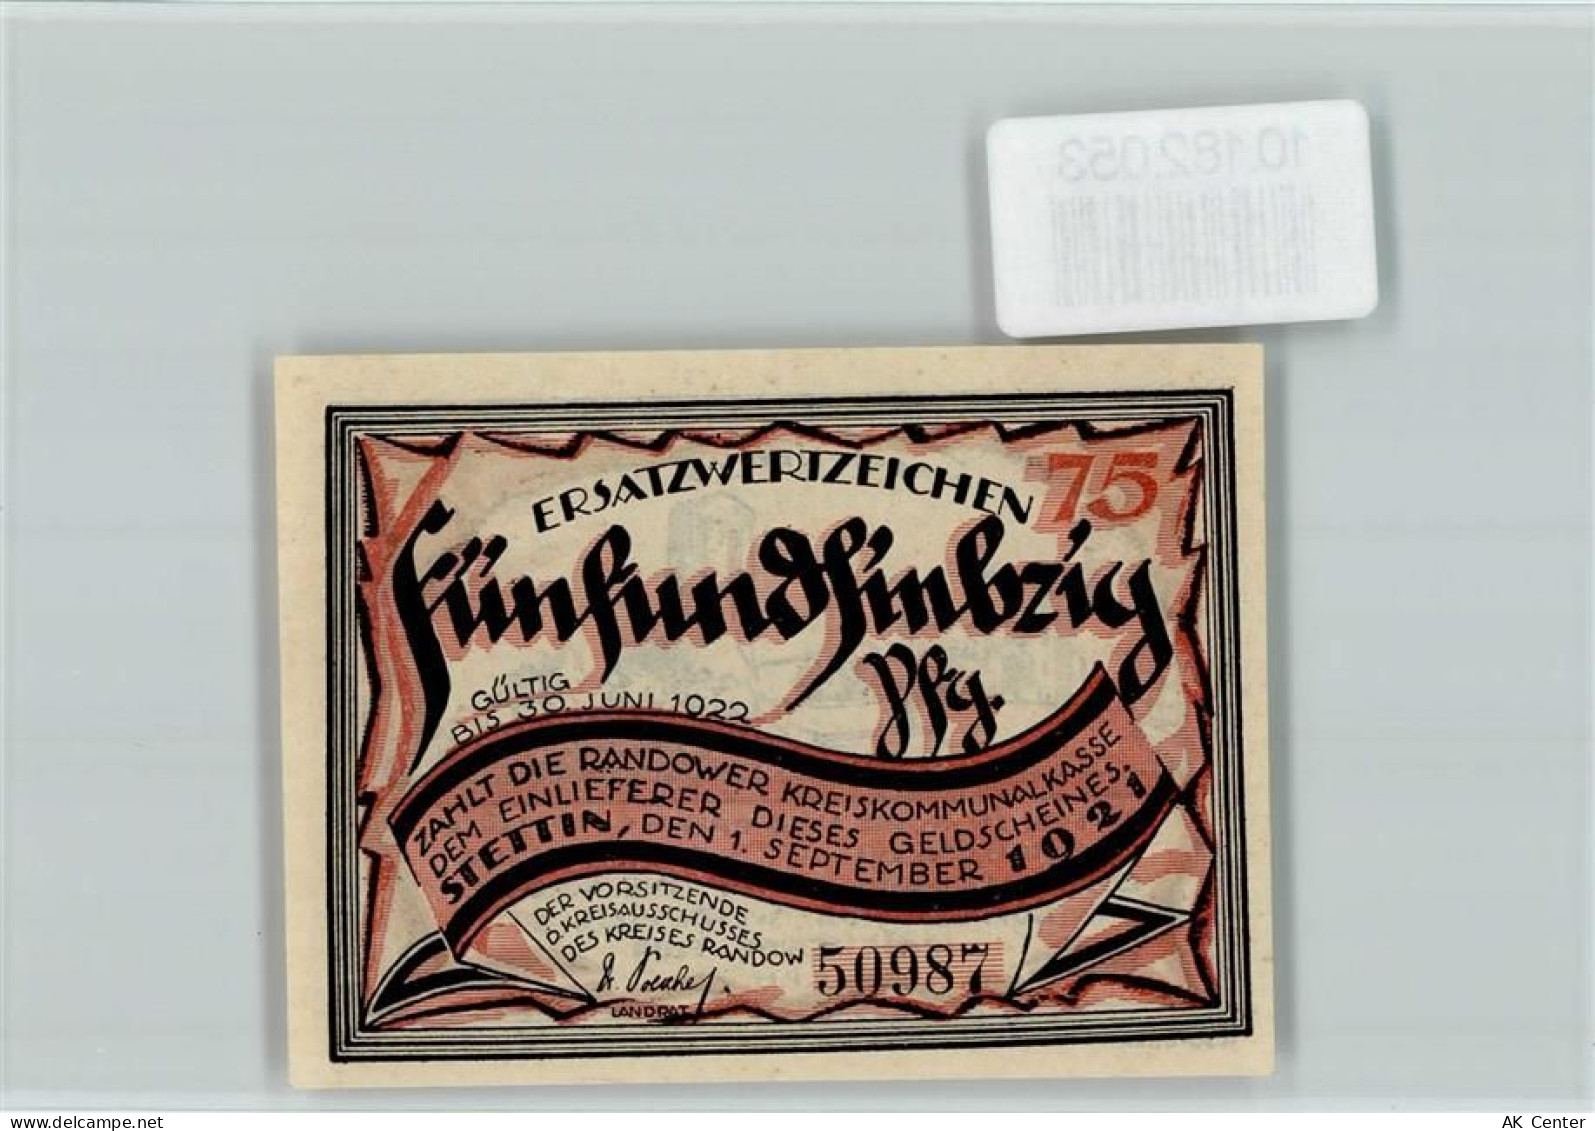 10.182.053
ERSATZWERTZEICHEN
75
Fünfundsiebzig
Pfg.
GÜLTIG
BIS 30. JUNI 1922
ZAHLT DIE RANDOWER KREISKOMMUNALKASSE
DEM EINLIEFERER DIESES GELDSCHEINES.
STETTIN, DEN 1. SEPTEMBER 1921
DER VORSITZENDE
D. KREISAUSSCHUSSES
DES KREISES RANDOW
LANDRAT
50987
www.delcampe.net
AK Center